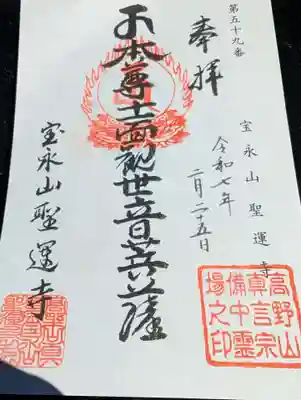 第五十九番
奉拝
宝永山聖運寺
令和七年
二月二十五日
本尊十一面観世音菩薩
宝永山聖運寺
高野山
真言宗
備中霊
場之印